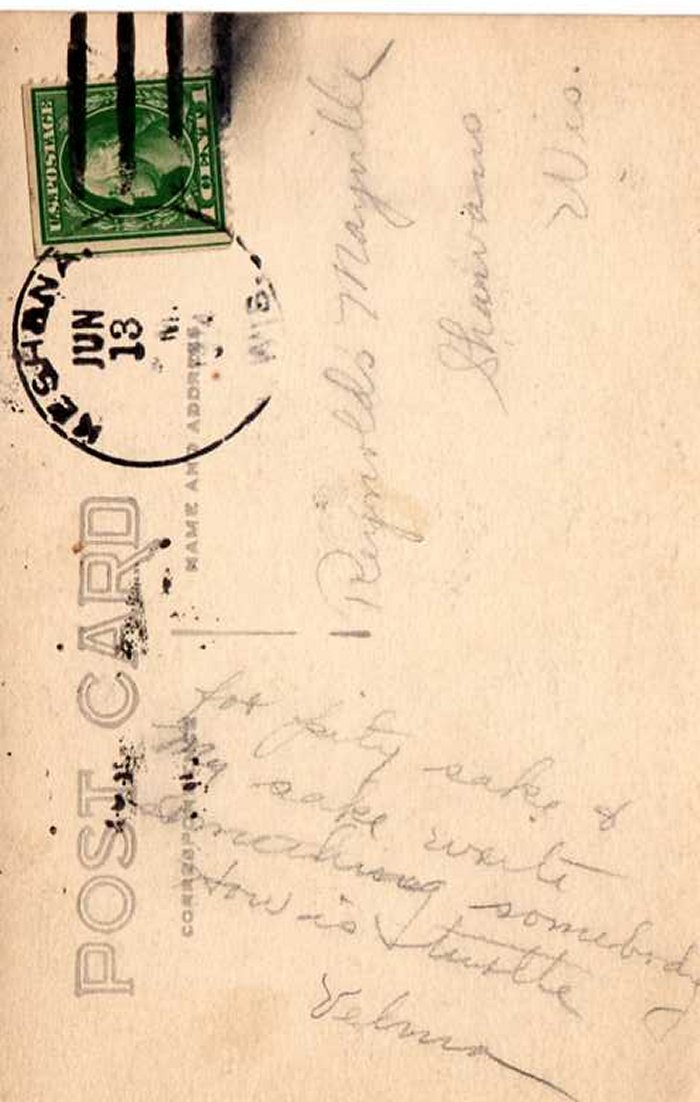 POST CARD
CORRESPONDENCE
NAME AND ADDRESS
U.S. POSTAGE
1 CENT 1
KESHENA.
JUN
13
M.
WIS.
for pity sake &
my sake write
something somebody
How is
Velma
Reynolds Mayville
Shawano
Wis.